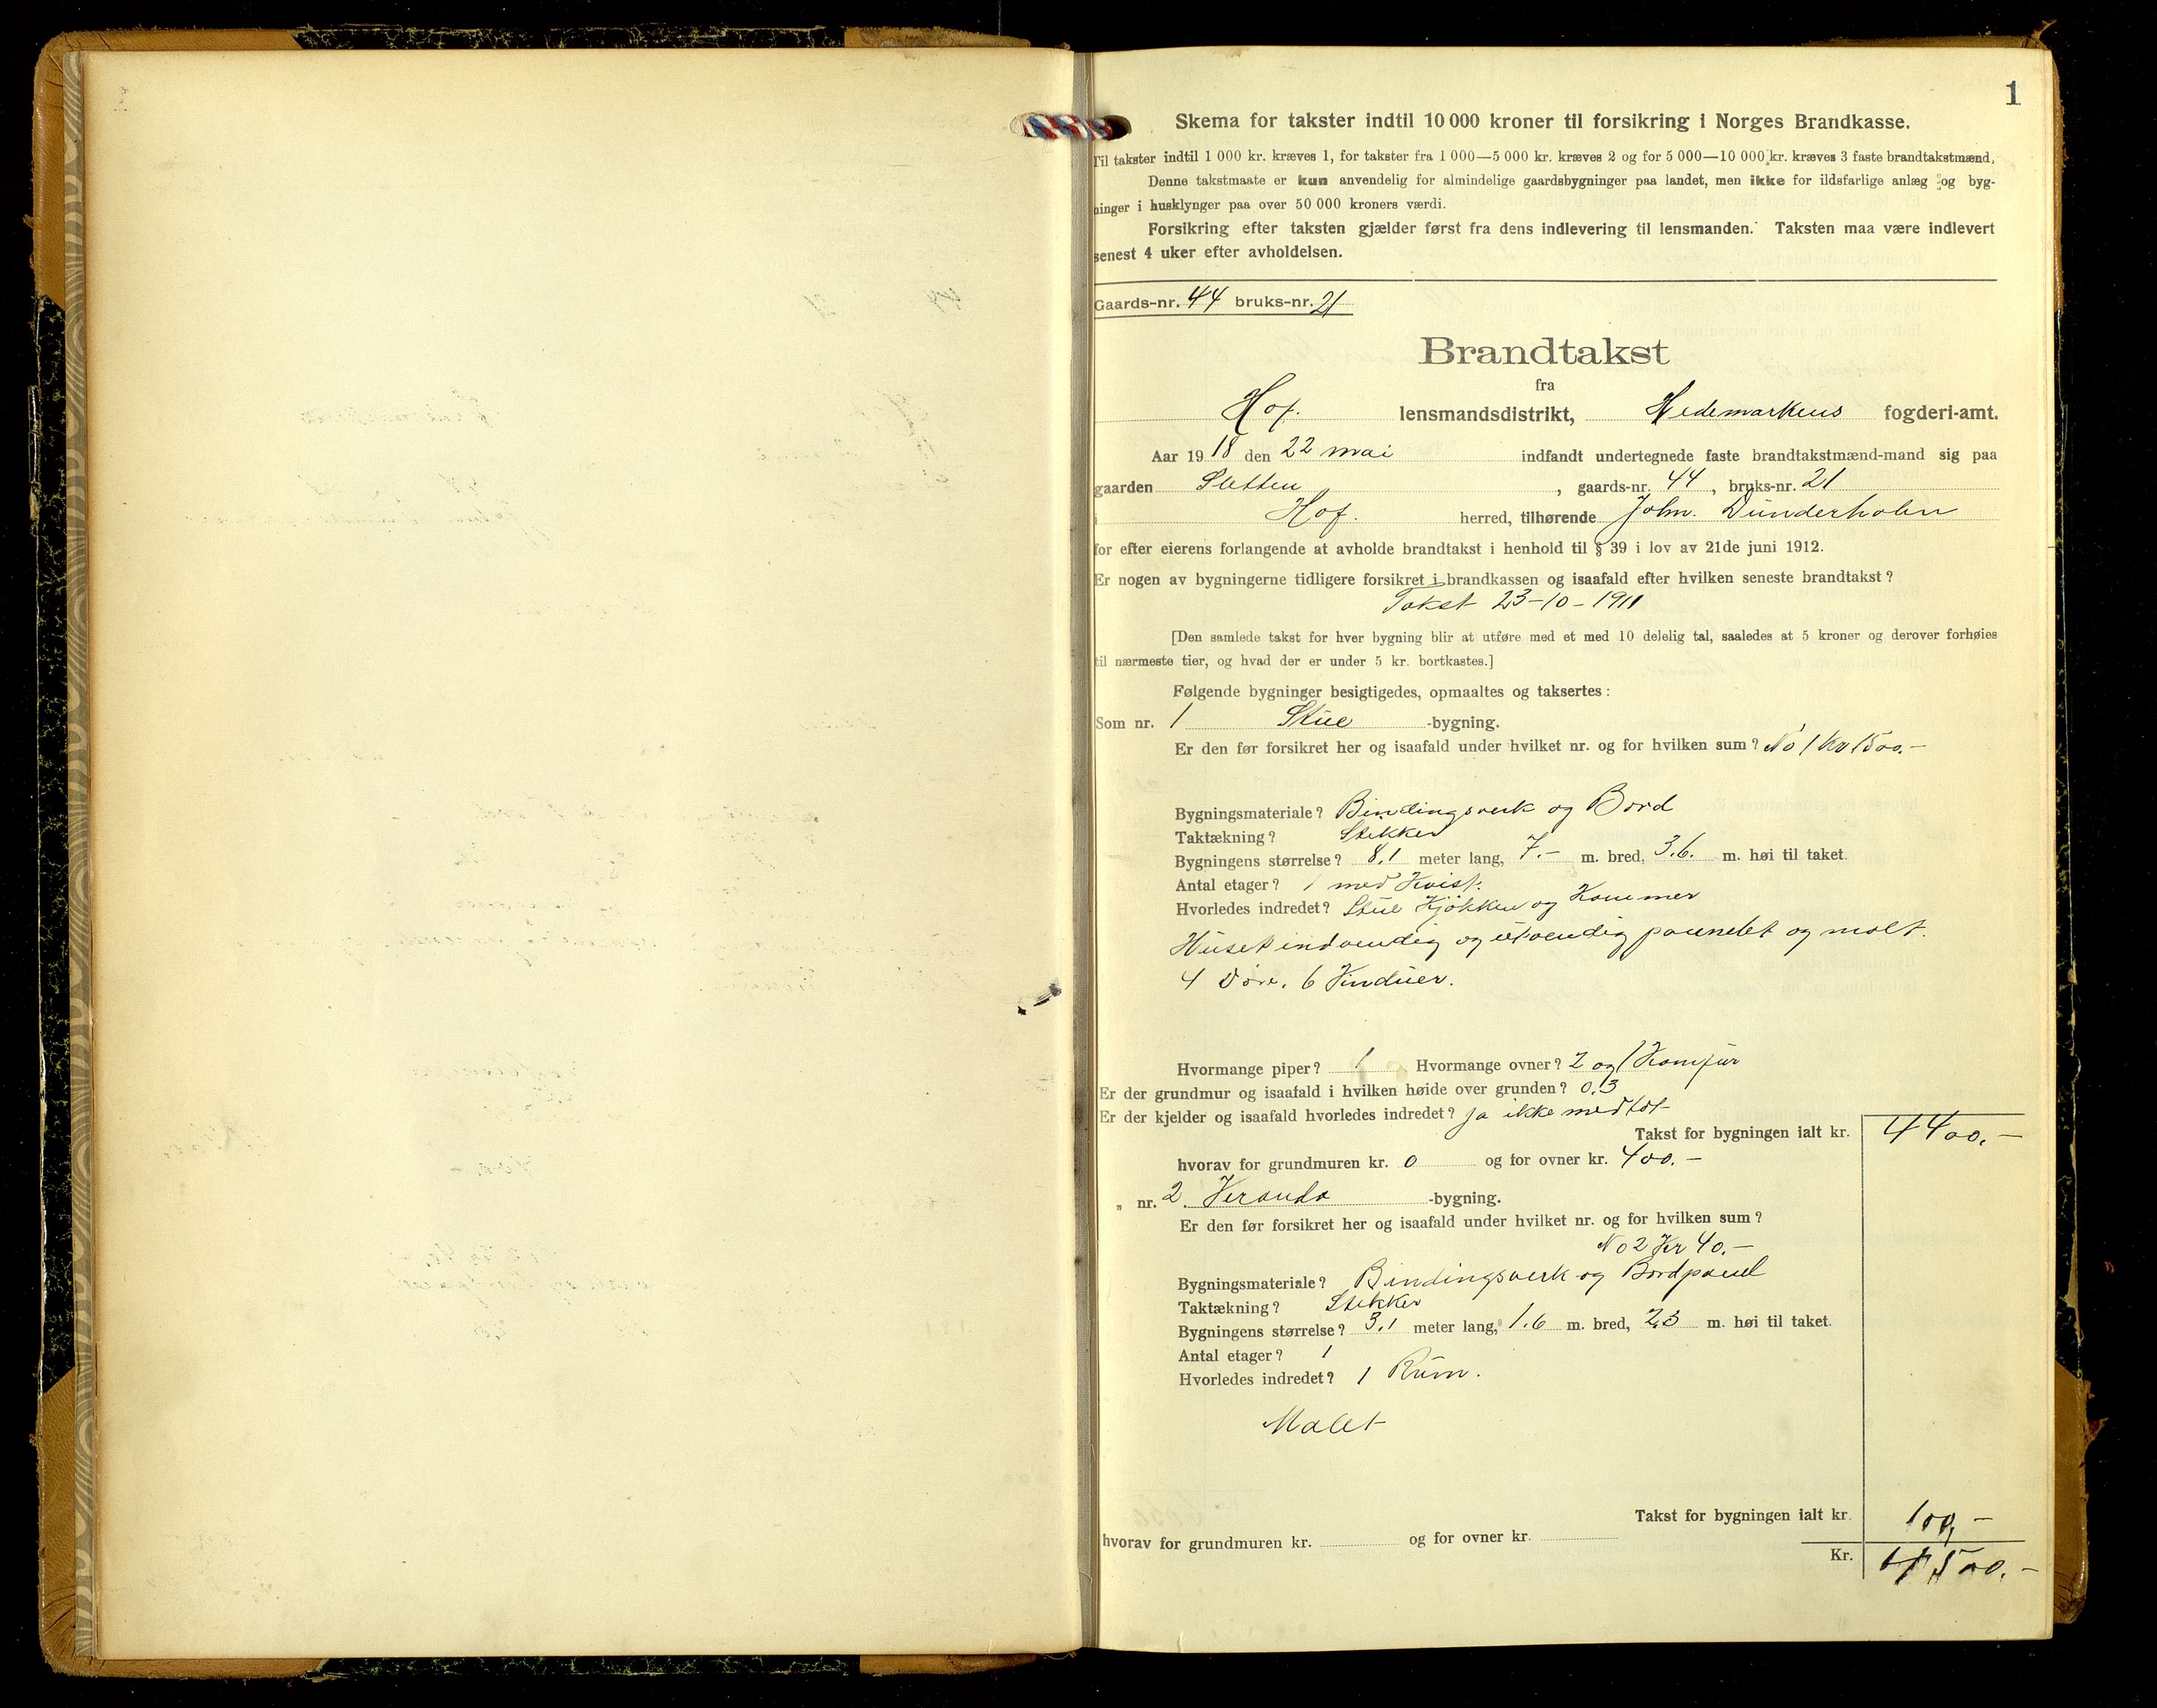 1
Skema for takster indtil 10 000 kroner til forsikring i Norges Brandkasse.
Til takster indtil 1 000 kr. kræves 1, for takster fra 1 000—5 000 kr. kræves 2 og for 5 000—10 000 kr. kræves 3 faste brandtakstmænd.
Denne takstmaate er kun anvendelig for almindelige gaardsbygninger paa landet, men ikke for ildsfarlige anlæg og byg-
ninger i husklynger paa over 50 000 kroners værdi.
Forsikring efter taksten gjælder først fra dens indlevering til lensmanden. Taksten maa være indlevert
senest 4 uker efter avholdelsen.
Gaards-nr. 44 bruks-nr. 21
Brandtakst
fra
Hof. lensmandsdistrikt, Hedemarkens fogderi-amt.
Aar 1918 den 22 mai indfandt undertegnede faste brandtakstmænd-mand sig paa
gaarden Sletten, gaards-nr. 44, bruks-nr. 21
i Hof. herred, tilhørende John. Dunderholen
for efter eierens forlangende at avholde brandtakst i henhold til § 39 i lov av 21de juni 1912.
Er nogen av bygningerne tidligere forsikret i brandkassen og isaafald efter hvilken seneste brandtakst?
Takst 23-10-1911
[Den samlede takst for hver bygning blir at utføre med et med 10 delelig tal, saaledes at 5 kroner og derover forhøies
til nærmeste tier, og hvad der er under 5 kr. bortkastes.]
Følgende bygninger besigtigedes, opmaaltes og taksertes:
Som nr. 1 Stue -bygning.
Er den før forsikret her og isaafald under hvilket nr. og for hvilken sum? No 1 Kr 1500.-
Bygningsmateriale? Bindingsverk og Bord
Taktækning? Stikker
Bygningens størrelse? 8,1 meter lang, 7.- m. bred, 3.6. m. høi til taket.
Antal etager? 1 med Kvist.
Hvorledes indredet? Stue Kjøkken og Kammer
Huset indvendig og utvendig paunelet og malt.
4 Døre. 6 Vinduer.
Hvormange piper? 1 Hvormange ovner? 2 og 1 Komfur
Er der grundmur og isaafald i hvilken høide over grunden? 0,3
Er der kjelder og isaafald hvorledes indredet? ja ikke medtat
Takst for bygningen ialt kr. 4400.-
hvorav for grundmuren kr. 0 og for ovner kr. 400.-
„ nr. 2. Veranda -bygning.
Er den før forsikret her og isaafald under hvilket nr. og for hvilken sum?
No 2 Kr 40.-
Bygningsmateriale? Bindingsverk og Bordpanel
Taktækning? Stikker
Bygningens størrelse? 3,1 meter lang, 1.6 m. bred, 2,3 m. høi til taket.
Antal etager? 1
Hvorledes indredet? 1 Rum.
Malet
Takst for bygningen ialt kr. 100,-
hvorav for grundmuren kr. og for ovner kr.
Kr. 4500.-